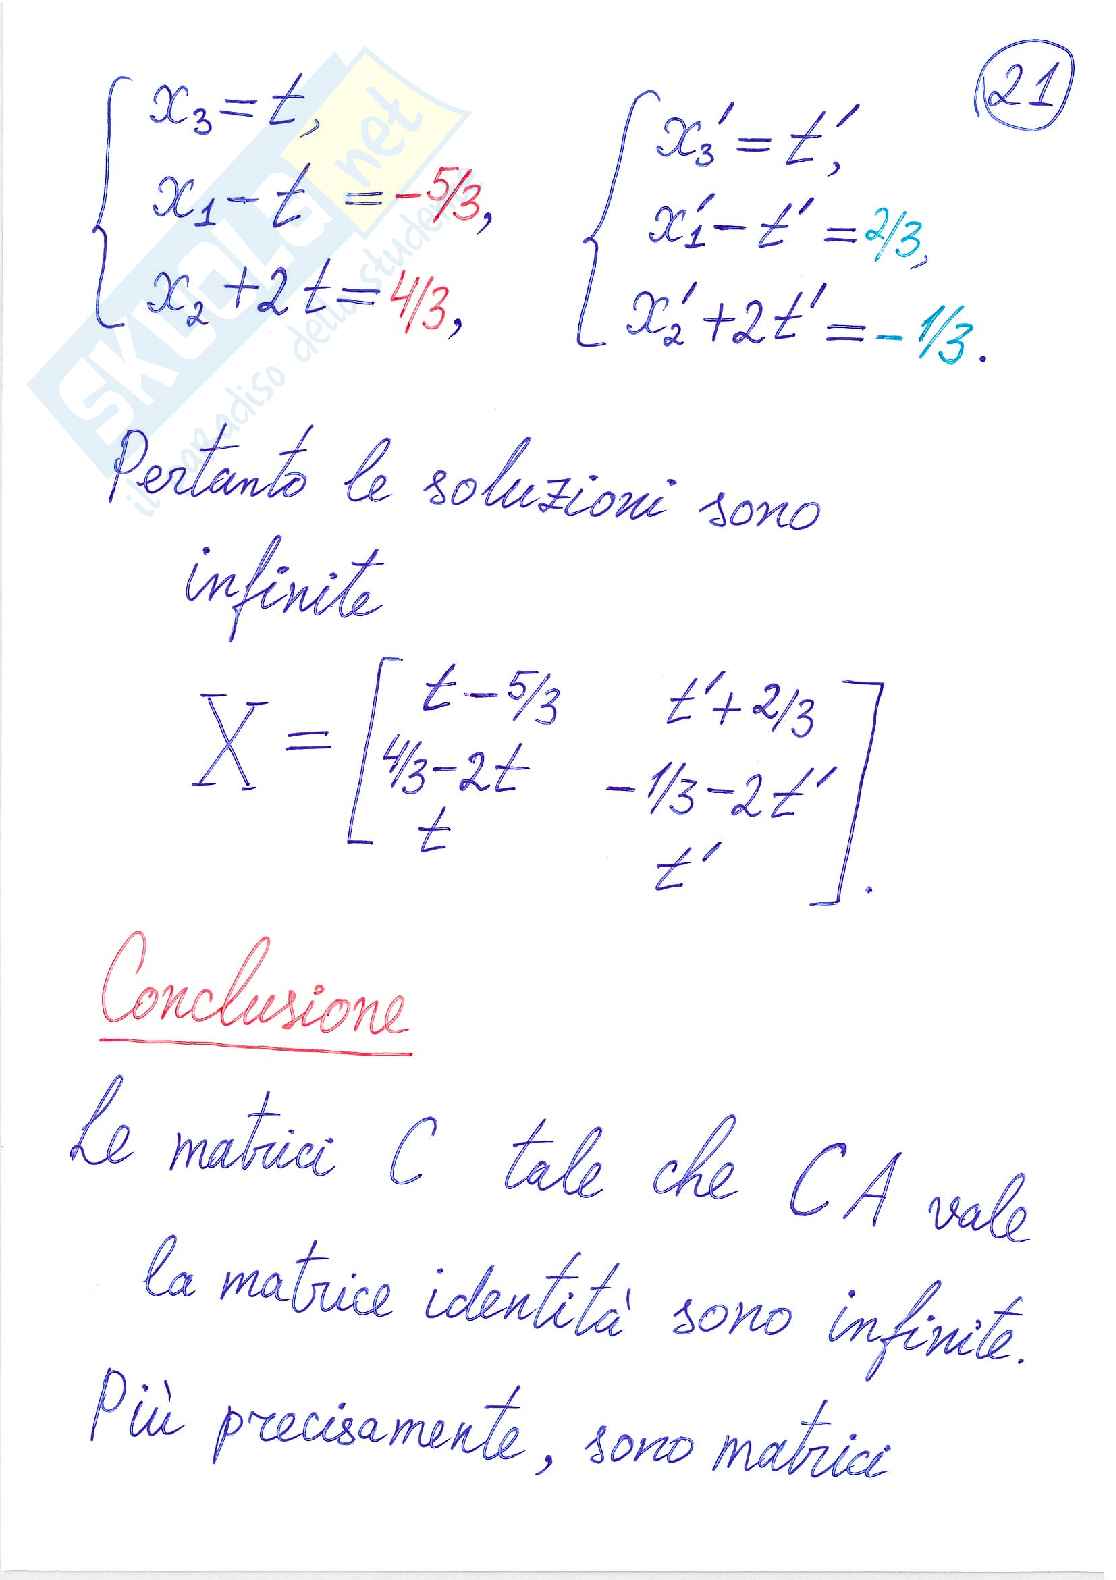 21
x₃ = t,
x₁ − t = −5/3,
x₂ + 2t = 4/3,
x₃′ = t′,
x₁′ − t′ = 2/3,
x₂′ + 2t′ = −1/3.
SKUOLA.net
il paradiso dello studente
Pertanto le soluzioni sono
infinite
X = [ t − 5/3   t′ + 2/3
4/3 − 2t   −1/3 − 2t′
t   t′ ].
Conclusione
Le matrici C tale che CA vale
la matrice identità sono infinite.
Più precisamente, sono matrici